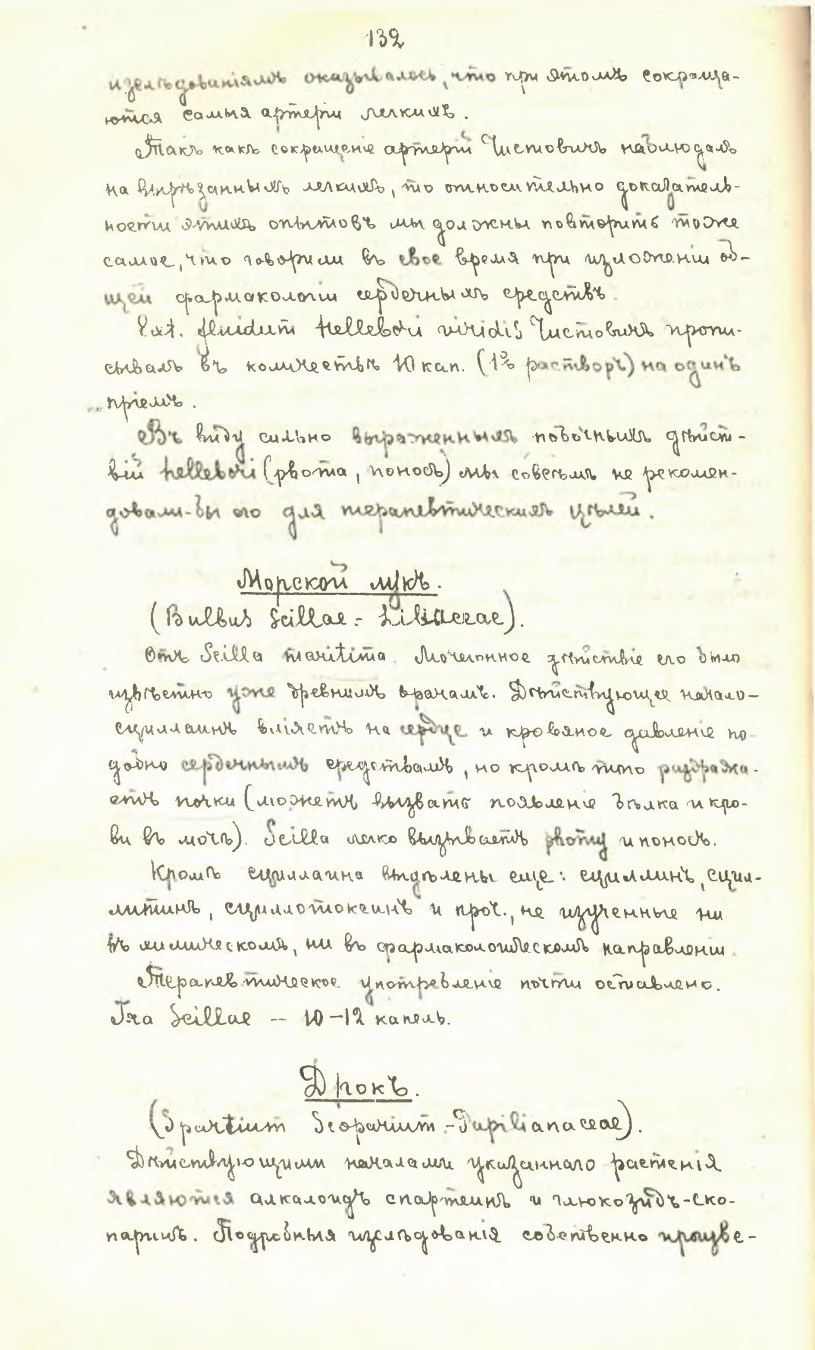 132
изслѣдованіямъ оказывалось, что при этомъ сокраща-
ются самыя артеріи легкихъ.
Такъ какъ сокращеніе артерій Чистовичъ наблюдалъ
на вырѣзанныхъ легкихъ, то относительно доказатель-
ности этихъ опытовъ мы должны повторить тоже
самое, что говорили въ свое время при изложеніи об-
щей фармакологіи сердечныхъ средствъ.
Ext. fluidum hellebori viridis Чистовичъ пропи-
сывалъ въ количествѣ 10 кап. (1% растворъ) на одинъ
пріемъ.
Въ виду сильно выраженныхъ побочныхъ дѣйст-
вій hellebori (рвота, поносъ) мы совсѣмъ не рекомен-
довали-бы его для терапевтическихъ цѣлей.
Морской лукъ.
(Bulbus Scillae - Liliaceae).
Отъ Scilla maritima. Мочегонное дѣйствіе его было
извѣстно уже древнимъ врачамъ. Дѣйствующее начало-
сциллаинъ вліяетъ на сердце и кровяное давленіе по-
добно сердечнымъ средствамъ, но кромѣ того раздража-
етъ почки (можетъ вызвать появленіе бѣлка и кро-
ви въ мочѣ). Scilla легко вызываетъ рвоту и поносъ.
Кромѣ сциллаина выдѣлены еще: сциллинъ, сцил-
литинъ, сциллотоксинъ и проч., не изученные ни
въ химическомъ, ни въ фармакологическомъ направленіи.
Терапевтическое употребленіе почти оставлено.
T-ra Scillae — 10-12 капель.
Дрокъ.
(Spartium Scoparium - Papilianaceae).
Дѣйствующими началами указаннаго растенія
являются алкалоидъ спартеинъ и глюкозидъ-ско-
паринъ. Подробныя изслѣдованія собственно произве-